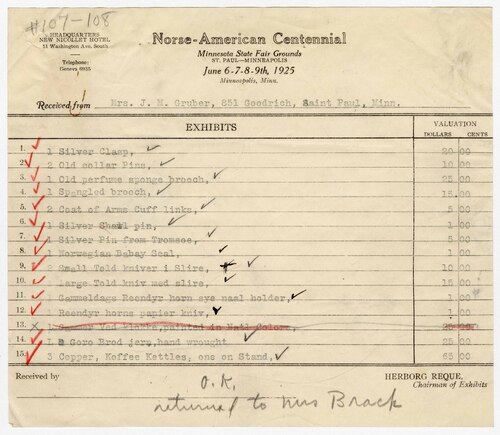 #107-108
HEADQUARTERS
NEW NICOLLET HOTEL
11 Washington Ave. South
Telephone:
Geneva 6935
Norse-American Centennial
Minnesota State Fair Grounds
ST. PAUL—MINNEAPOLIS
June 6-7-8-9th, 1925
Minneapolis, Minn.
Received from Mrs. J. M. Gruber, 851 Goodrich, Saint Paul, Minn.
EXHIBITS VALUATION
DOLLARS CENTS
1. 1 Silver Clasp, 20 00
2. 2 Old collar Pins, 10 00
3. 1 Old perfume sponge brooch, 25 00
4. 1 Spangled brooch, 15. 00
5. 2 Coat of Arms Cuff links, 5 00
6. 1 Silver Shawl pin, 6 00
7. 1 Silver Pin from Tromsoe, 5 00
8. 1 Norwegian Babay Seal, 1 00
9. Small Told kniver i Slire, 10 00
10. 1 Large Told kniv med slire, 15 00
11. 1 Gammeldags Reendyr horn sye naal holder, 1 00
12. 1 Reendyr horns papier kniv, 1 00
13. painted in Color 00
14. Goro Brod jern, hand wrought 25 00
15. 3 Copper, Koffee Kettles, one on Stand, 65 00
Received by HERBORG REQUE,
Chairman of Exhibits
O.K.
returned to Mrs Brack